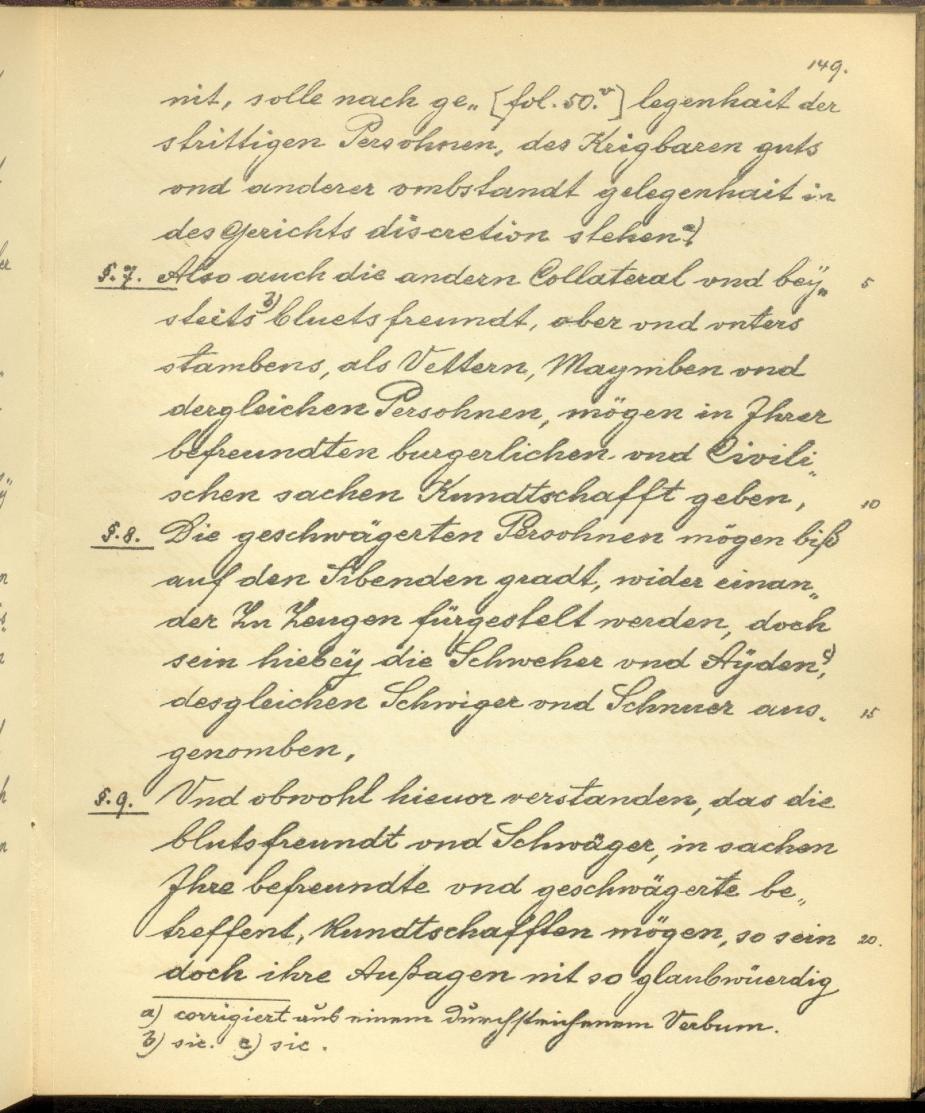 149.
nit, solle nach ge„ [fol. 50.v] legenhait der
strittigen Persohnen, des Krigbaren guts
vnd anderer vmbstandt gelegenhait in
des Gerichts discretion stehen. a)
§. 7. Also auch die andern Collateral vnd beÿ„ 5
steits b) bluetsfreundt, ober vnd vnters
stambens, als Vettern, Maymben vnd
dergleichen Persohnen, mögen in Ihrer
befreundten burgerlichen vnd Civili„
schen sachen Kundtschafft geben, 10
§. 8. Die geschwägerten Persohnen mögen biß
auf den Sibenden gradt, wider einan„
der Zu Zeugen fürgestelt werden, doch
sein hiebeÿ die Schweher vnd Aÿden, c)
desgleichen Schwiger vnd Schnuer aus„ 15
genomben,
§. 9. Vnd obwohl hieuor verstanden, das die
blutsfreundt vnd Schwäger, in sachen
Ihre befreundte vnd geschwägerte be„
treffent, Kundtschafften mögen, so sein 20.
doch ihre Außagen nit so glaubwüerdig
a) corrigiert aus einem durchstrichenem Verbum.
b) sic. c) sic.